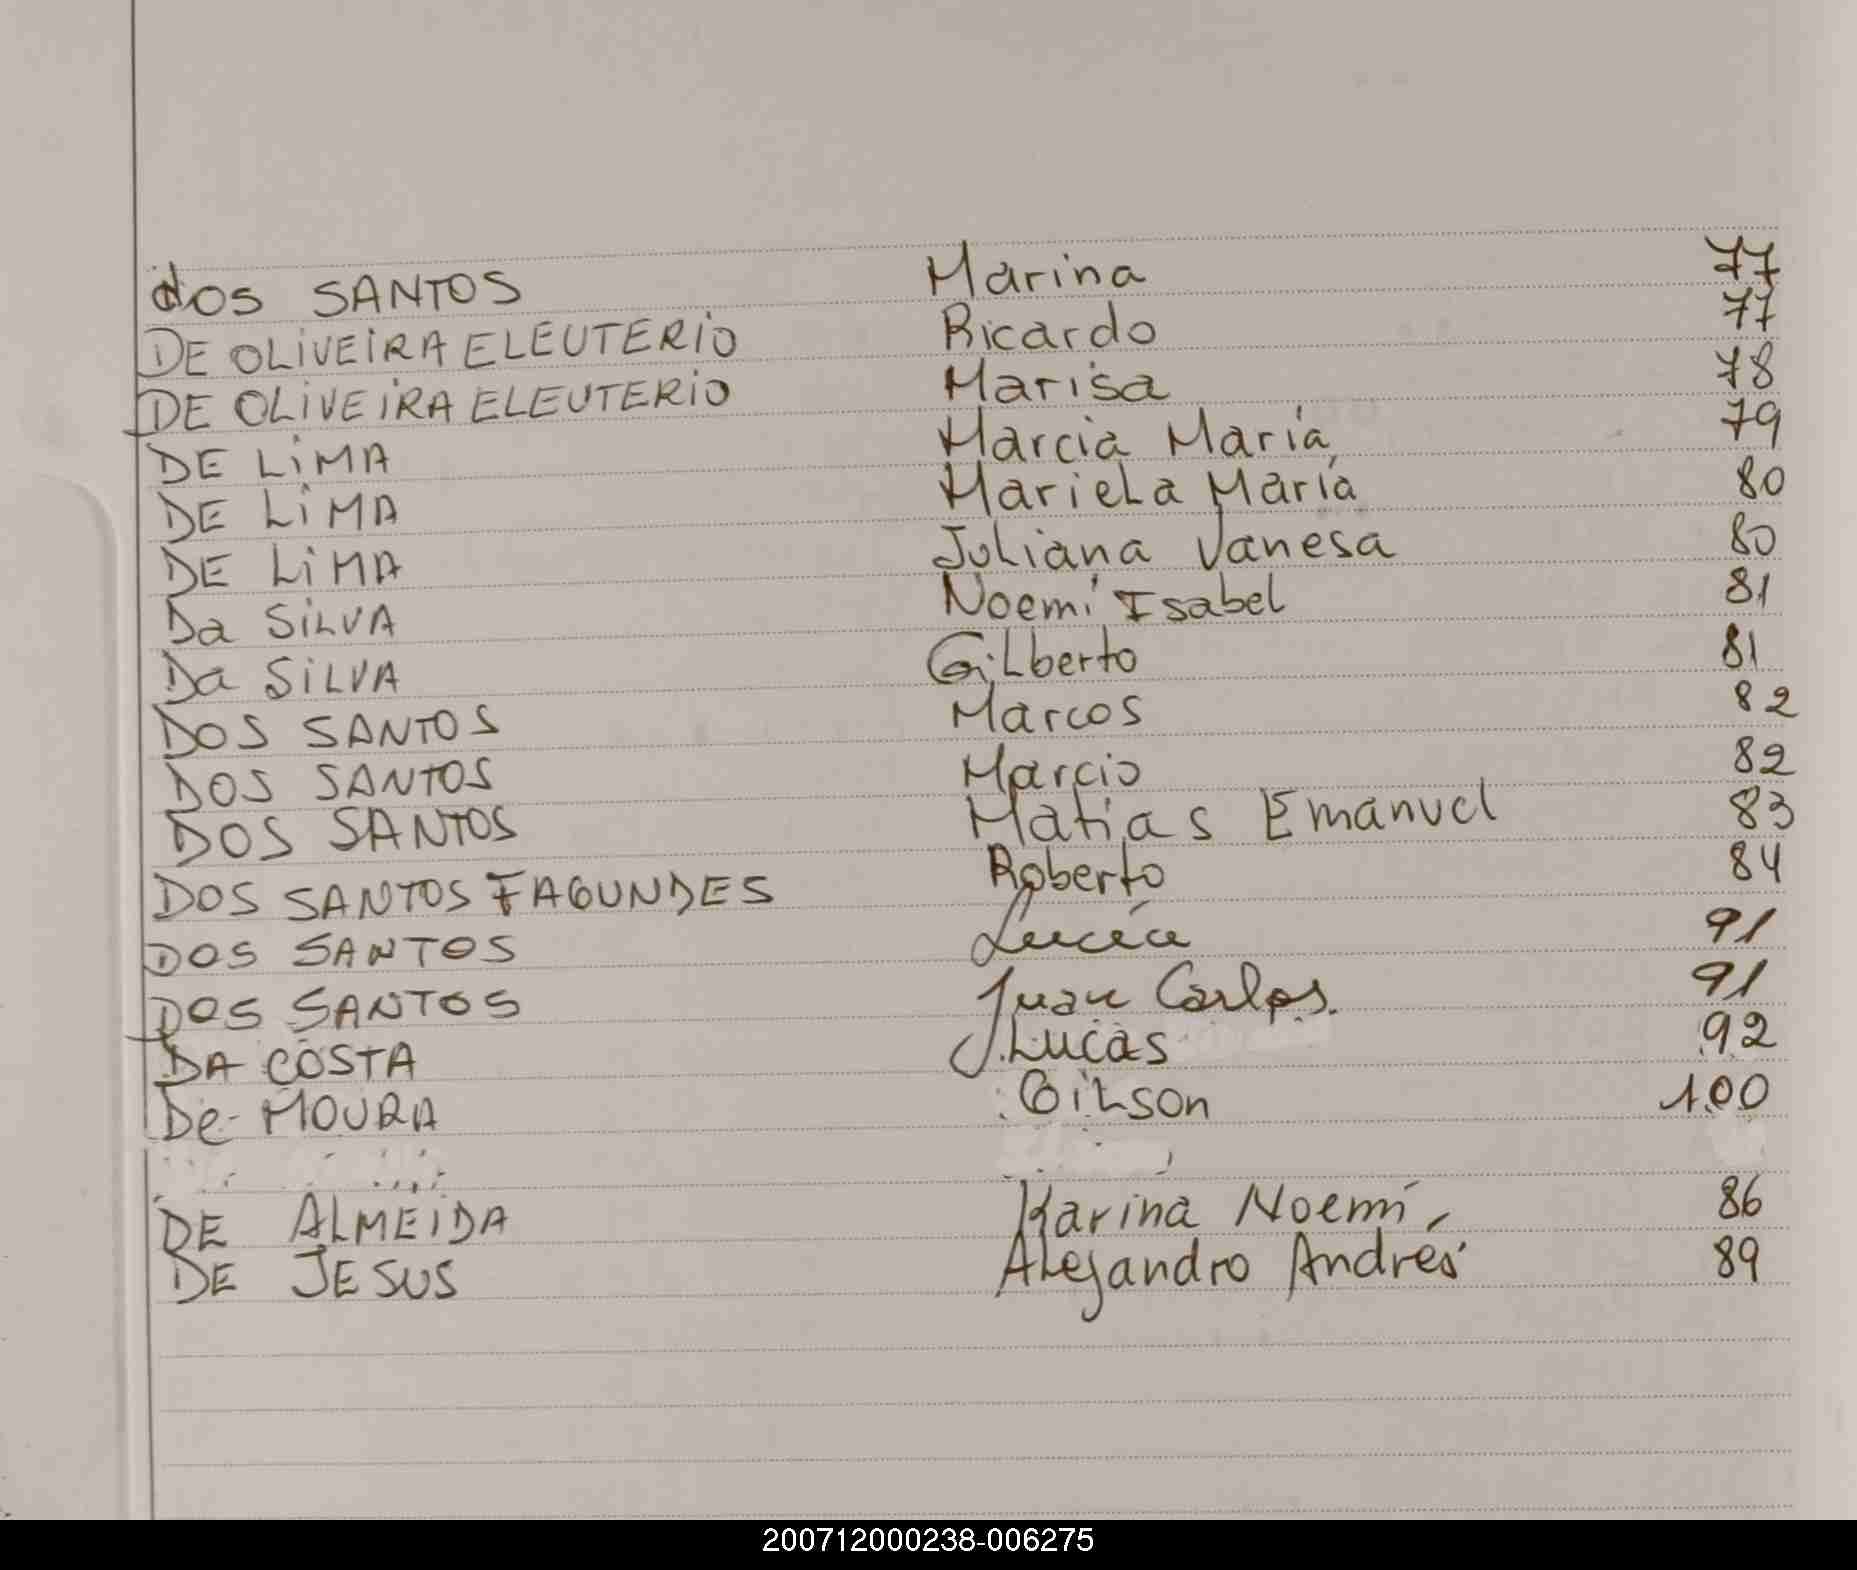 dos SANTOS Marina 77
DE OLiVEiRA ELEUTERiO Ricardo 77
DE OLiVEiRA ELEUTERiO Marisa 78
DE LiMA Marcia María 79
DE LiMA Mariela María 80
DE LiMA Juliana Vanesa 80
Da SiLVA Noemí Isabel 81
Da SiLVA Gilberto 81
DOS SANTOS Marcos 82
DOS SANTOS Marcio 82
DOS SANTOS Matias Emanuel 83
DOS SANTOS FAGUNDES Roberto 84
DOS SANTOS Lucía 91
DOS SANTOS Juan Carlos. 91
DA COSTA Lucas 92
De MOURA Gilson 100
DE ALMEiDA Karina Noemí 86
DE JESUS Alejandro Andrés 89
200712000238-006275